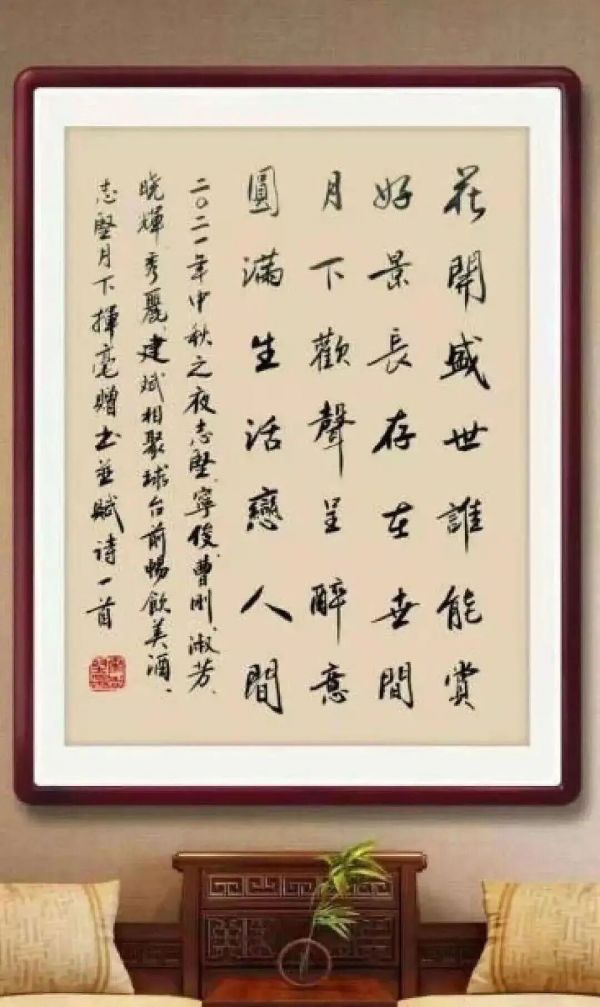 花開盛世誰能賞
好景長存在世間
月下歡聲呈醉意
圓滿生活戀人間
二〇二一年中秋之夜志堅、寧俊、曹刚、淑芳、
晓輝、秀麗、建斌相聚球台前暢飲美酒、
志堅月下揮毫贈书並賦诗一首